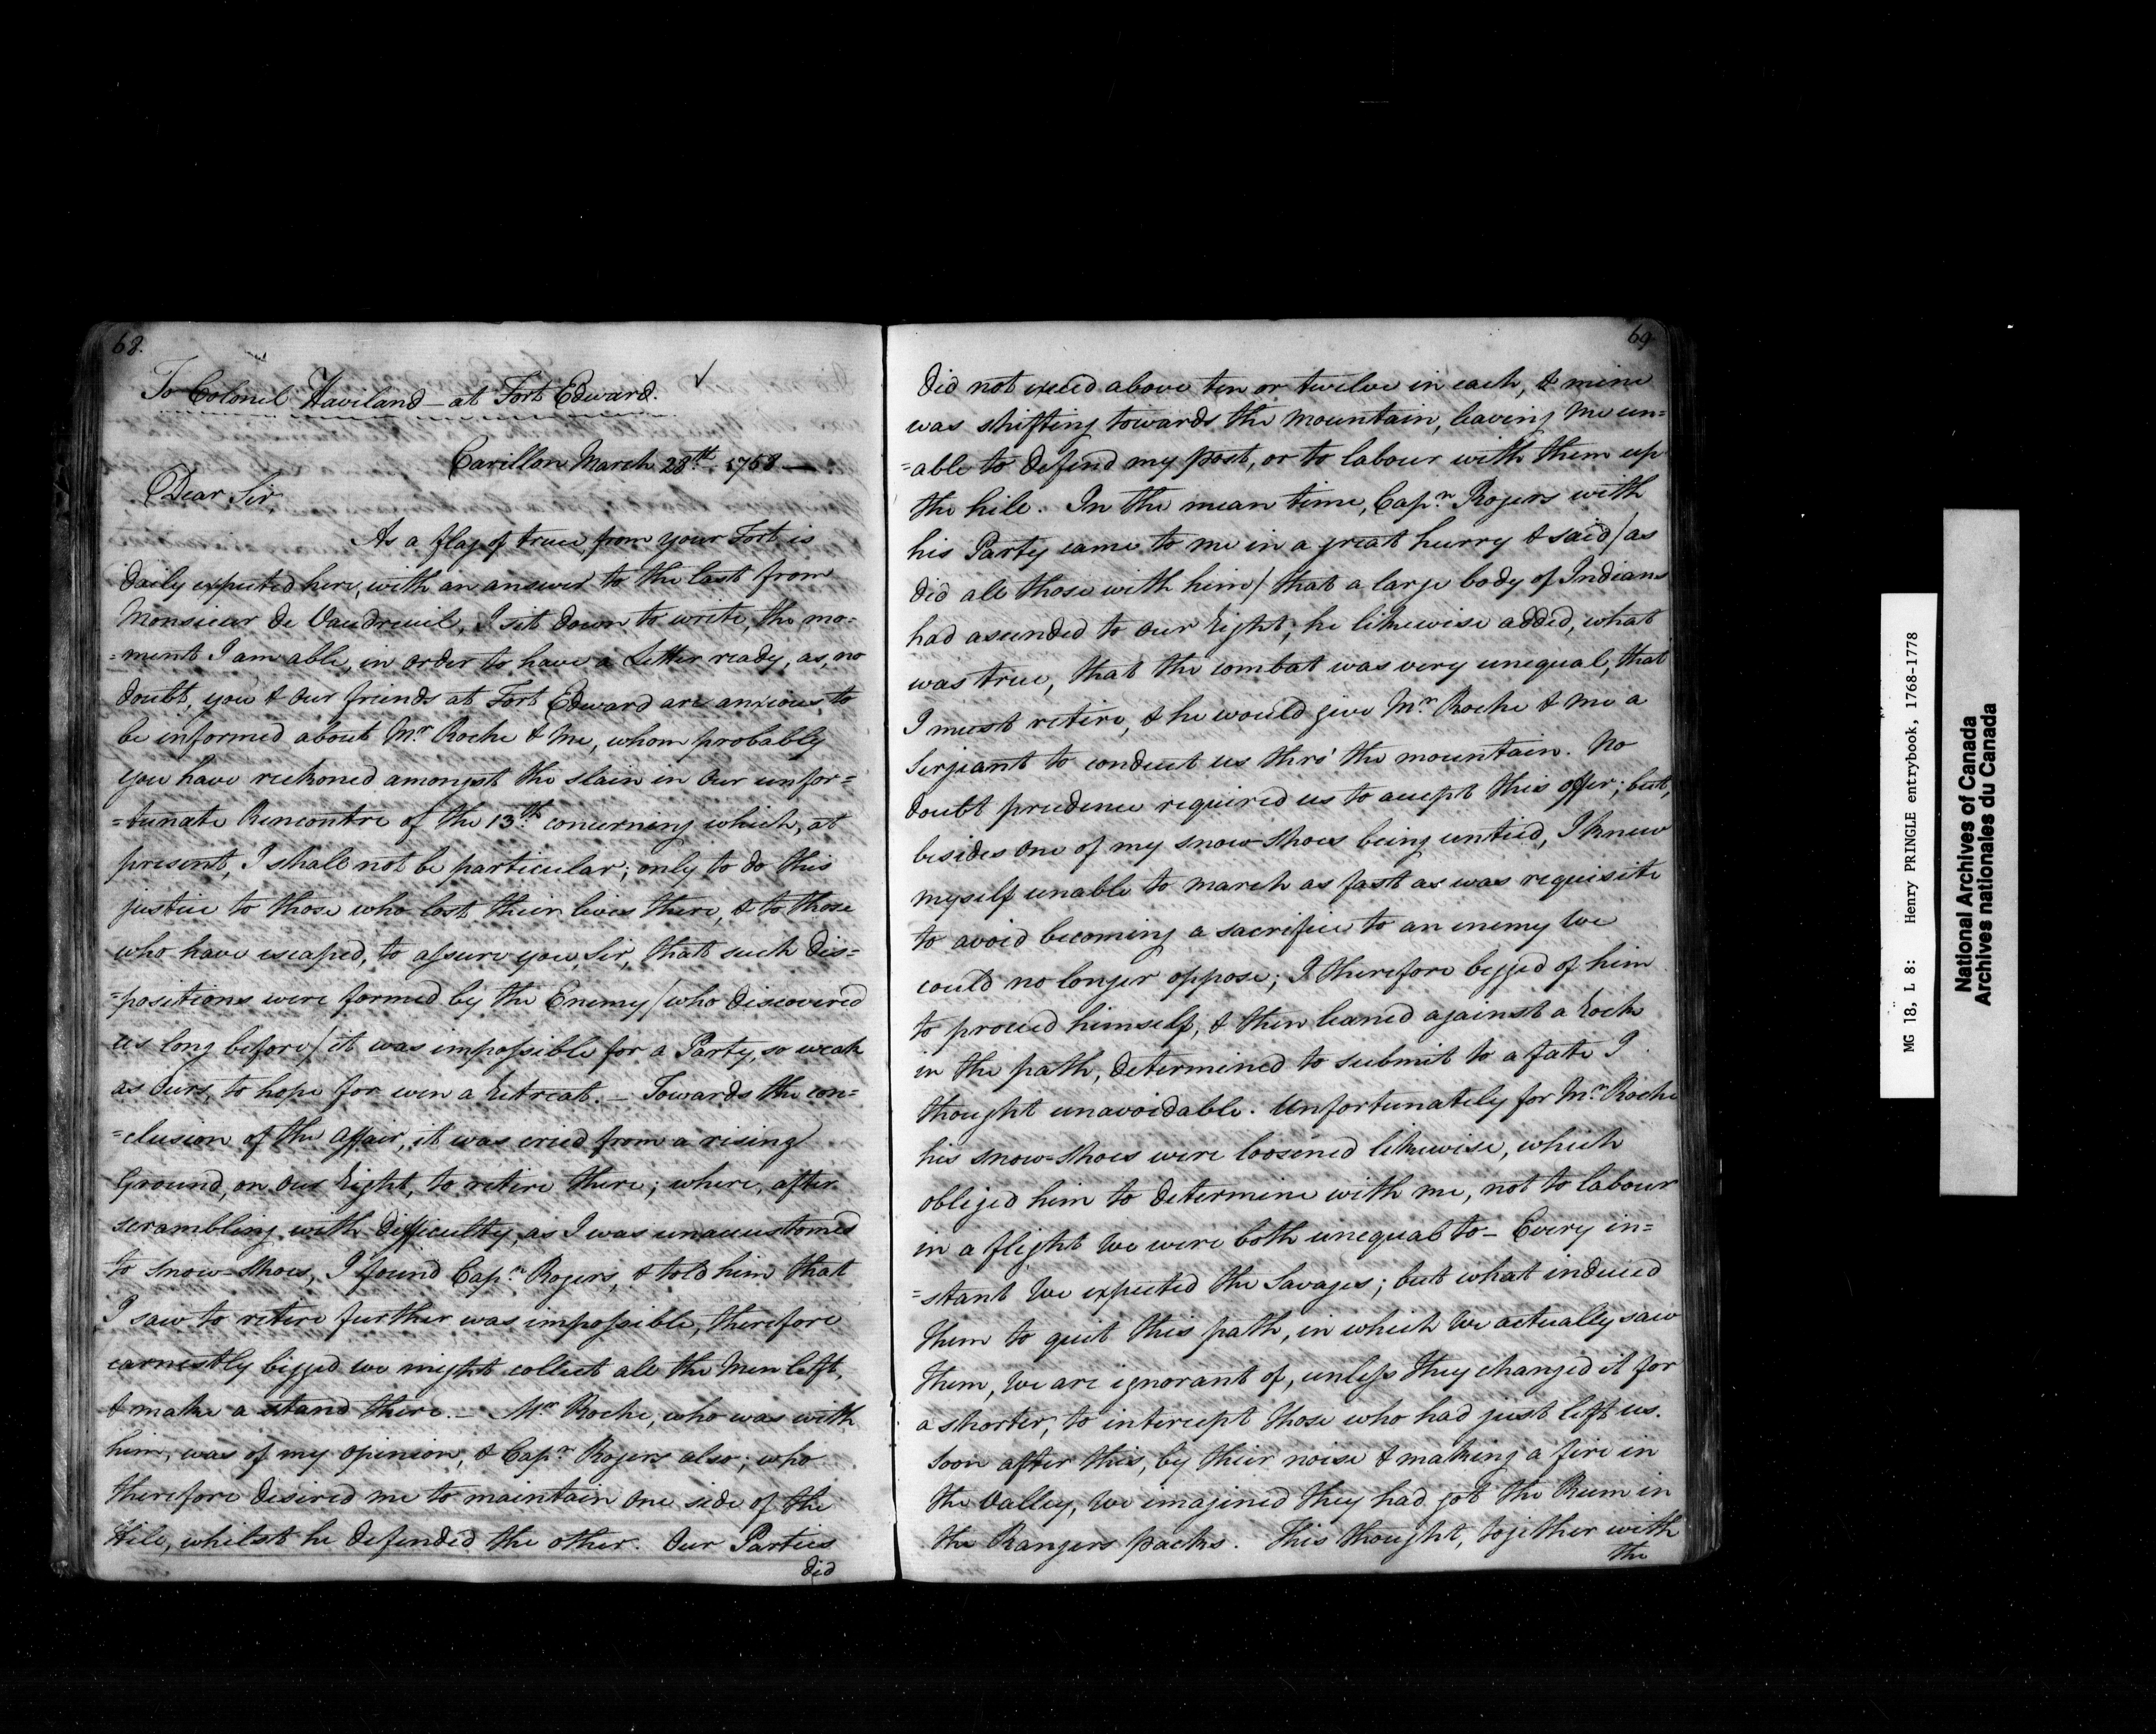 68.
To Colonel Haviland - at Fort Edward.
Carillon March 28th. 1758 —
Dear Sir,
As a flag of truce, from your Fort is
daily expected here, with an answer to the last from
Monsieur de Vaudreuil, I sit down to write, the mo=
=ment I am able, in order to have a Letter ready, as, no
doubt, you & our friends at Fort Edward are anxious to
be informed about Mr Roche & me, whom probably
you have reckoned amongst the slain in our unfor=
=tunate Rencontre of the 13th. concerning which, at
present, I shall not be particular; only to do this
justice to those who lost their lives there, & to those
who have escaped, to assure you, Sir, that such dis=
=positions were formed by the Enemy/who discovered
us long before/it was impossible for a Party, so weak
as Ours, to hope for even a Retreat. — Towards the con=
=clusion of the affair, it was cried from a rising
Ground, on our Right, to retire there; where, after
scrambling with difficulty, as I was unaccustomed
to Snow-shoes, I found Capn. Rogers, & told him that
I saw to retire further was impossible, therefore
earnestly begged we might collect all the Men left,
& make a stand there. — Mr Roche, who was with
him, was of my opinion, & Capn. Rogers also; who
therefore desired me to maintain one side of the
Hill, whilst he defended the other. Our Parties
did
69
did not exceed above ten or twelve in each, & mine
was shifting towards the mountain, leaving me un=
=able to defend my post, or to labour with them up
the hill. In the mean time, Capn. Rogers with
his Party came to me in a great hurry & said/as
did all those with him/that a large body of Indians
had ascended to our Right; he likewise added, what
was true, that the combat was very unequal, that
I must retire, & he would give Mr Roche & me a
Serjeant to conduct us thro' the mountain. No
doubt prudence required us to accept this offer; but,
besides one of my snow-shoes being untied, I knew
myself unable to march as fast as was requisite
to avoid becoming a sacrifice to an enemy we
could no longer oppose; I therefore begged of him
to proceed himself, & then leaned against a Rock
in the path, determined to submit to a fate I
thought unavoidable. Unfortunately for Mr Roche
his snow=shoes were loosened likewise, which
obliged him to determine with me, not to labour
in a flight we were both unequal to — Every in=
=stant we expected the Savages; but what induced
them to quit this path, in which we actually saw
them, we are ignorant of, unless they changed it for
a shorter, to intercept those who had just left us.
Soon after this, by their noise & making a fire in
the Valley, we imagined they had got the Rum in
the Rangers packs. This thought, together with
the
MG 18, L 8: Henry PRINGLE entrybook, 1768-1778
National Archives of Canada
Archives nationales du Canada